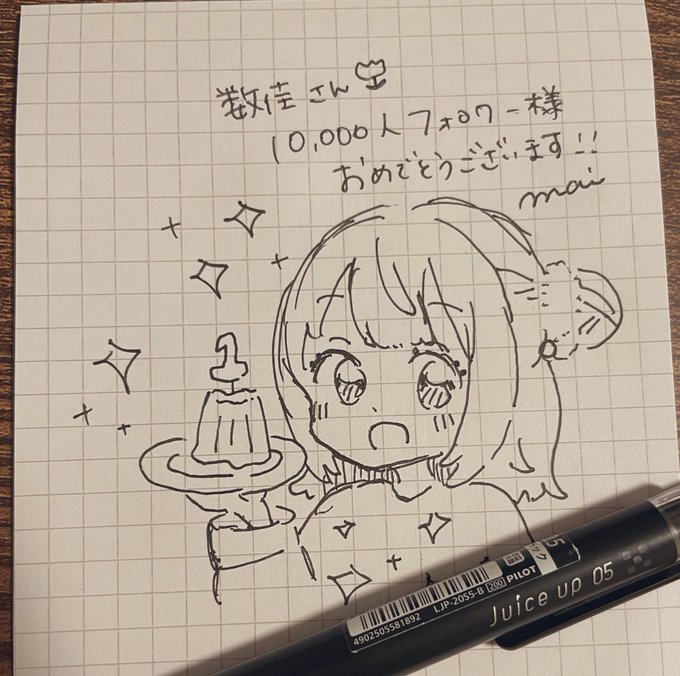 数佳さん
10,000人フォロワー様
おめでとうございます!!
mai
1
4902505581892
LJP-20S5-B
200
PILOT
Juice up 05